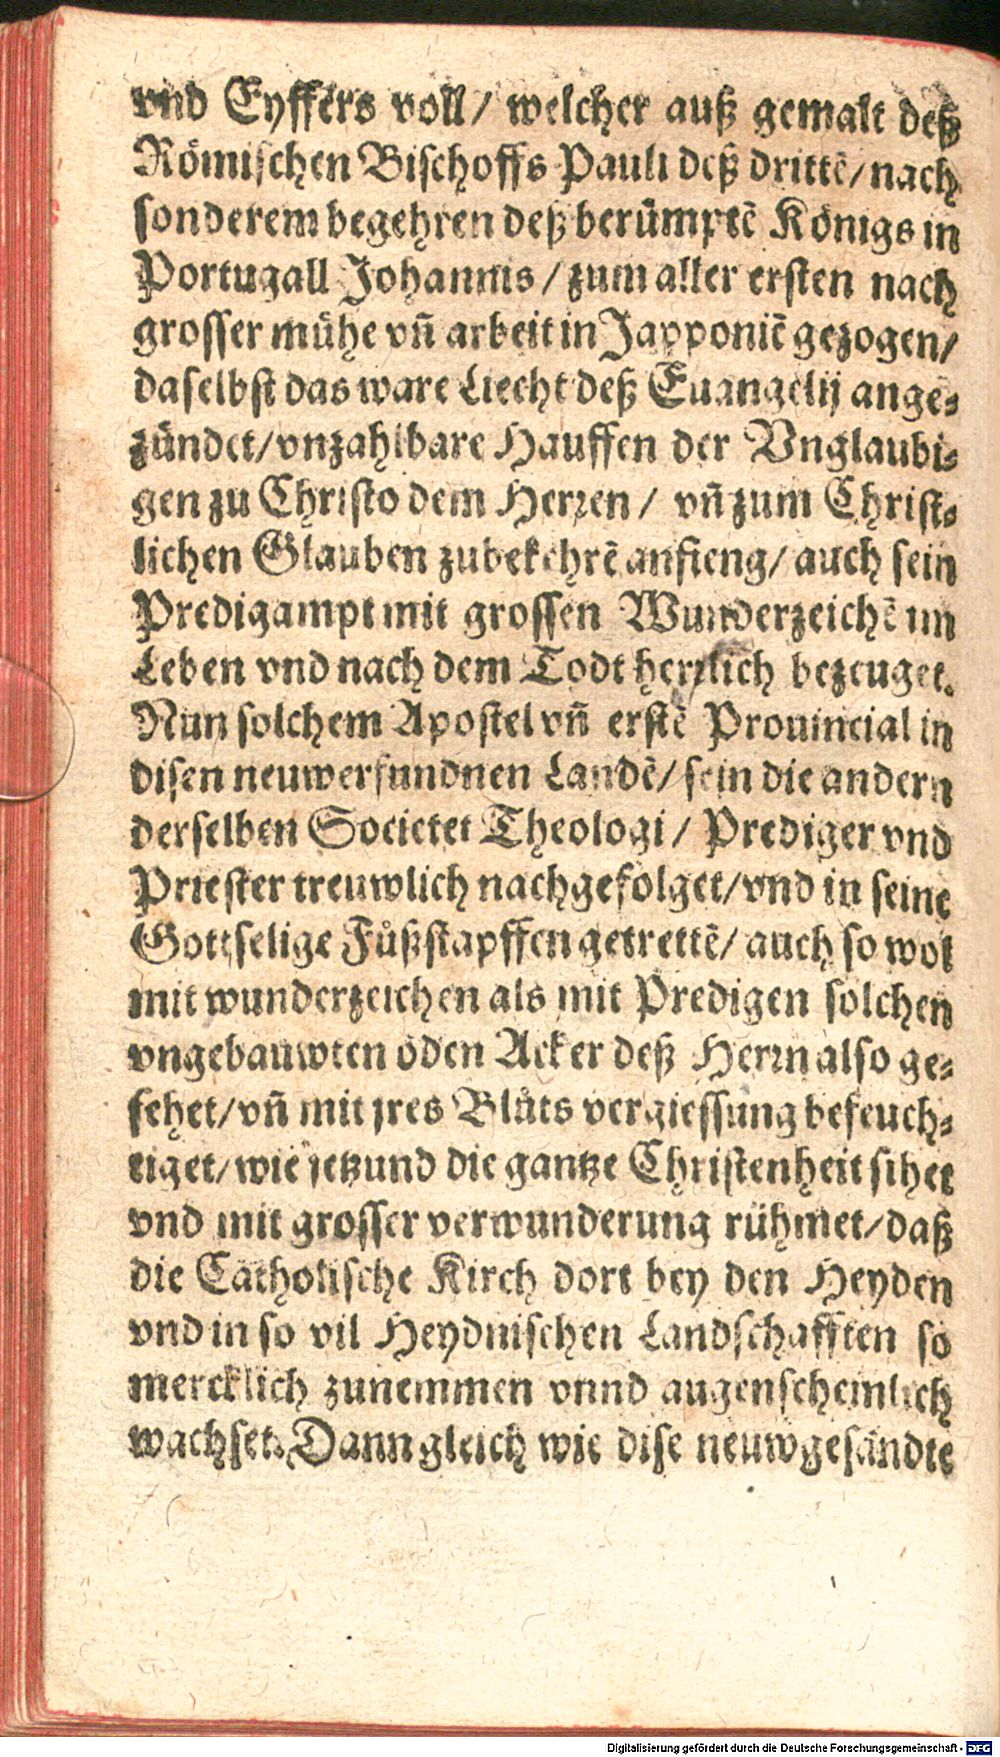 vnd Eyffers voll/ welcher auß gemalt deß
Römischen Bischoffs Pauli deß drittẽ/ nach
sonderem begehren deß berümptẽ Königs in
Portugall Johannis/ zum aller ersten nach
grosser mühe vñ arbeit in Japponiẽ gezogen/
daselbst das ware Liecht deß Euangelij ange-
zündet/ vnzahlbare Hauffen der Vnglaubi-
gen zu Christo dem Herren/ vñ zum Christ-
lichen Glauben zubekehrẽ anfieng/ auch sein
Predigampt mit grossen Wunderzeichẽ im
Leben vnd nach dem Todt herrlich bezeuget.
Nun solchem Apostel vñ erstẽ Prouincial in
disen neuwerfundnen Landẽ/ sein die andern
derselben Societet Theologi/ Prediger vnd
Priester treuwlich nachgefolget/ vnd in seine
Gottselige Fůßstapffen getrettẽ/ auch so wol
mit wunderzeichen als mit Predigen solchen
vngebauwten öden Acker deß Herrn also ge-
sehet/ vñ mit jres Blůts vergiessung befeuch-
tiget/ wie jetzund die gantze Christenheit sihet
vnd mit grosser verwunderung rühmet/ daß
die Catholische Kirch dort bey den Heyden
vnd in so vil Heydnischen Landschafften so
mercklich zunemmen vnnd augenscheinlich
wachset. Dann gleich wie dise neuwgesandte
Digitalisierung gefördert durch die Deutsche Forschungsgemeinschaft - DFG